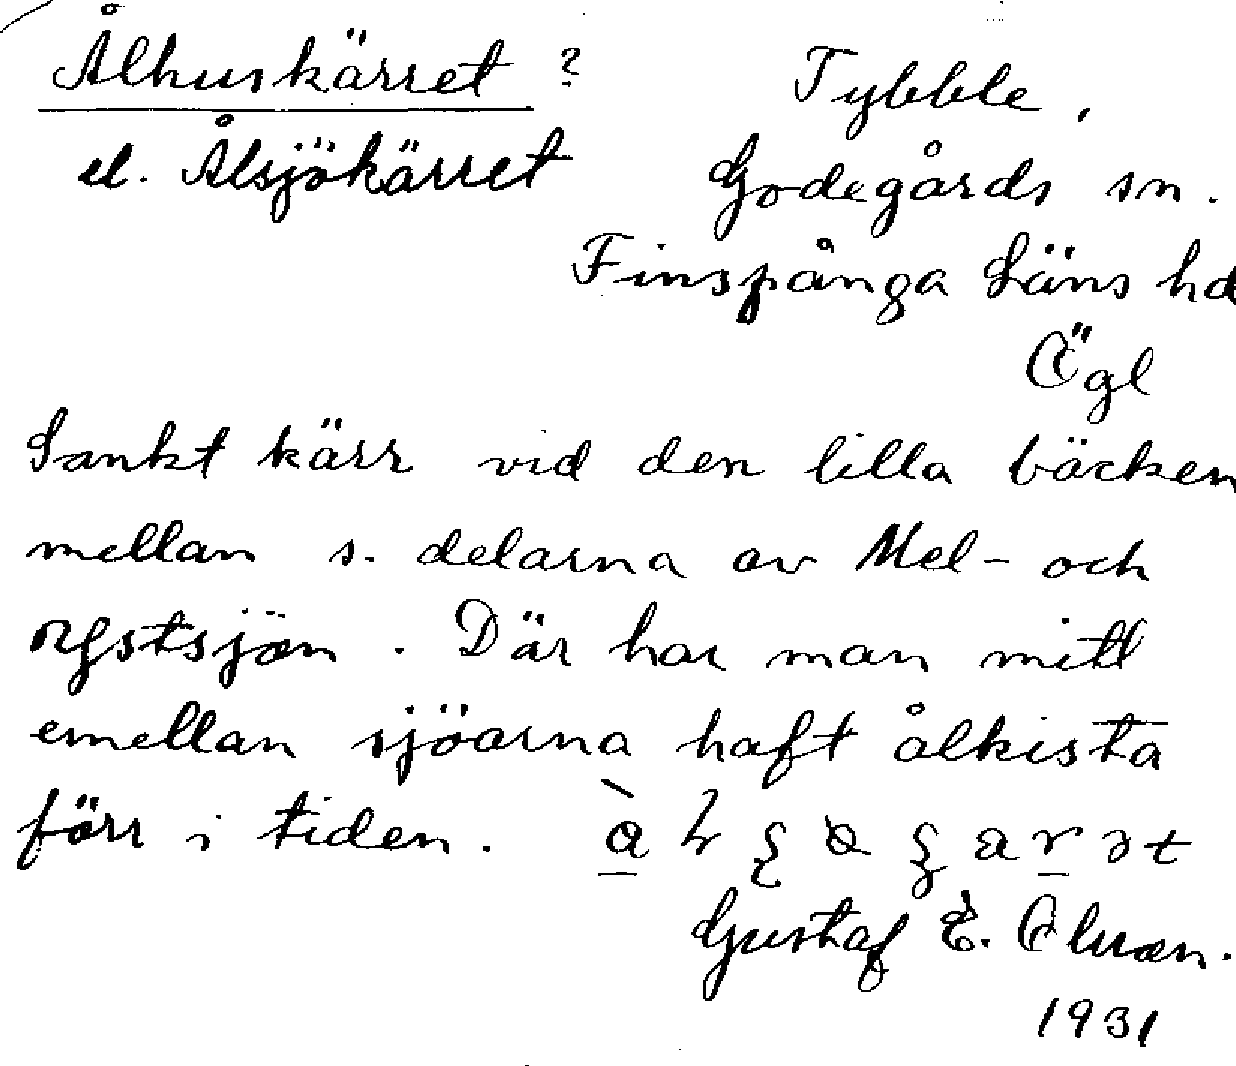 Ålhuskärret ?
el. Ålsjökärret
Tybble,
Godegårds sn.
Finspånga Läns hd
Ögl
Sankt kärr vid den lilla bäcken
mellan s. delarna av Mel- och
sjön. Där har man mitt
emellan sjöarna haft ålkista
förr i tiden.
Gustaf E.
1931